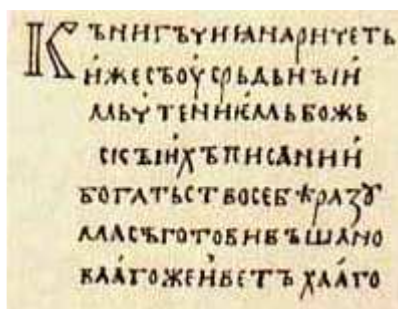 КЪНИГЪЧИꙖНАРИЧЕТЬ
ИЖЕСЪОУСРЬДЬНЪІИ
МЬЧТЕНИѤМЬБОЖЬ
СКЪІИХЪПИСАНИИ
БОГАТЬСТВОСЕБѢРАЗꙊ
МАСЪГОТОВИВЪШАНО
ВААГОЖЕИВЕТЪХААГО